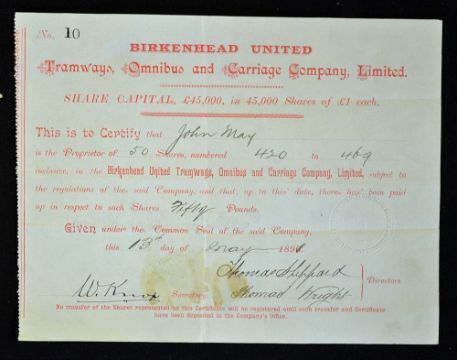 No. 10
BIRKENHEAD UNITED
Tramways, Omnibus and Carriage Company, Limited.
SHARE CAPITAL, £45,000, in 45,000 Shares of £1 each.
This is to Certify that John May
is the Proprietor of 50 Shares, numbered 420 to 469
inclusive, in the Birkenhead United Tramways, Omnibus and Carriage Company, Limited, subject to
the regulations of the said Company, and that, up to this date, there has been paid
up in respect to such Shares Fifty Pounds.
Given under the Common Seal of the said Company,
this 13th day of May 1891
Thomas Sheppard
Directors
W. Knox Secretary. Thomas Wright
No transfer of the Shares represented by this Certificate will be registered until such transfer and Certificate
have been deposited in the Company's Office.